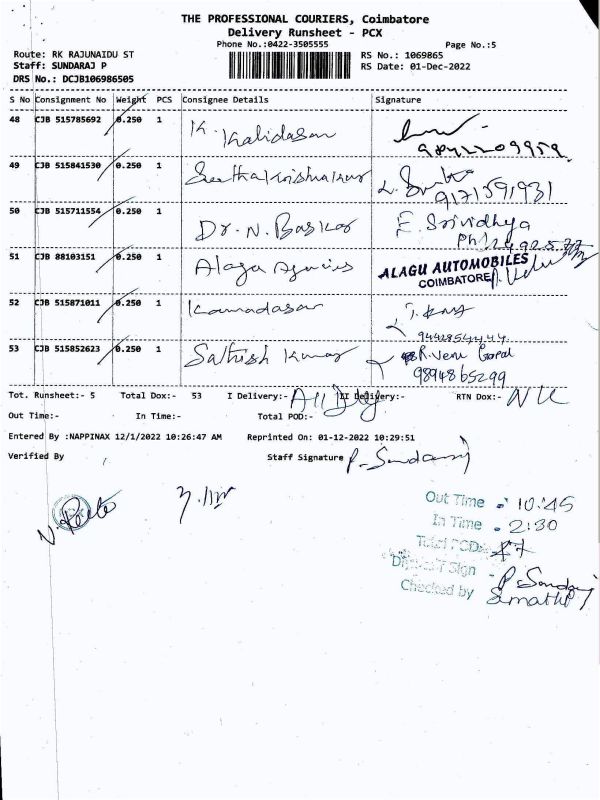 THE PROFESSIONAL COURIERS, Coimbatore
Delivery Runsheet - PCX
Phone No.:0422-3505555 Page No.:5
Route: RK RAJUNAIDU ST RS No.: 1069865
Staff: SUNDARAJ P RS Date: 01-Dec-2022
DRS No.: DCJB106986505
S No Consignment No Weight PCS Consignee Details Signature
48 CJB 515785692 0.250 1 K. Kalidasan
9842209959
49 CJB 515841530 0.250 1 Seethakrishnakumar
9171591931
50 CJB 515711554 0.250 1 Dr. N. Baskar E. Srividhya
51 CJB 88103151 0.250 1 Alagu Agencies ALAGU AUTOMOBILES
COIMBATORE
52 CJB 515871011 0.250 1 Kamadasan
53 CJB 515852623 0.250 1 Sathish Kumar R. Venu Gopal
9894865299
Tot. Runsheet:- 5 Total Dox:- 53 I Delivery:- All Dey II Delivery:- RTN Dox:- NIL
Out Time:- In Time:- Total POD:-
Entered By :NAPPINAX 12/1/2022 10:26:47 AM Reprinted On: 01-12-2022 10:29:51
Verified By Staff Signature P. Sundaraj
Out Time - 10:45
In Time - 2:30
Total PODs 47
Sign P. Sundaraj
Checked by Sumathi